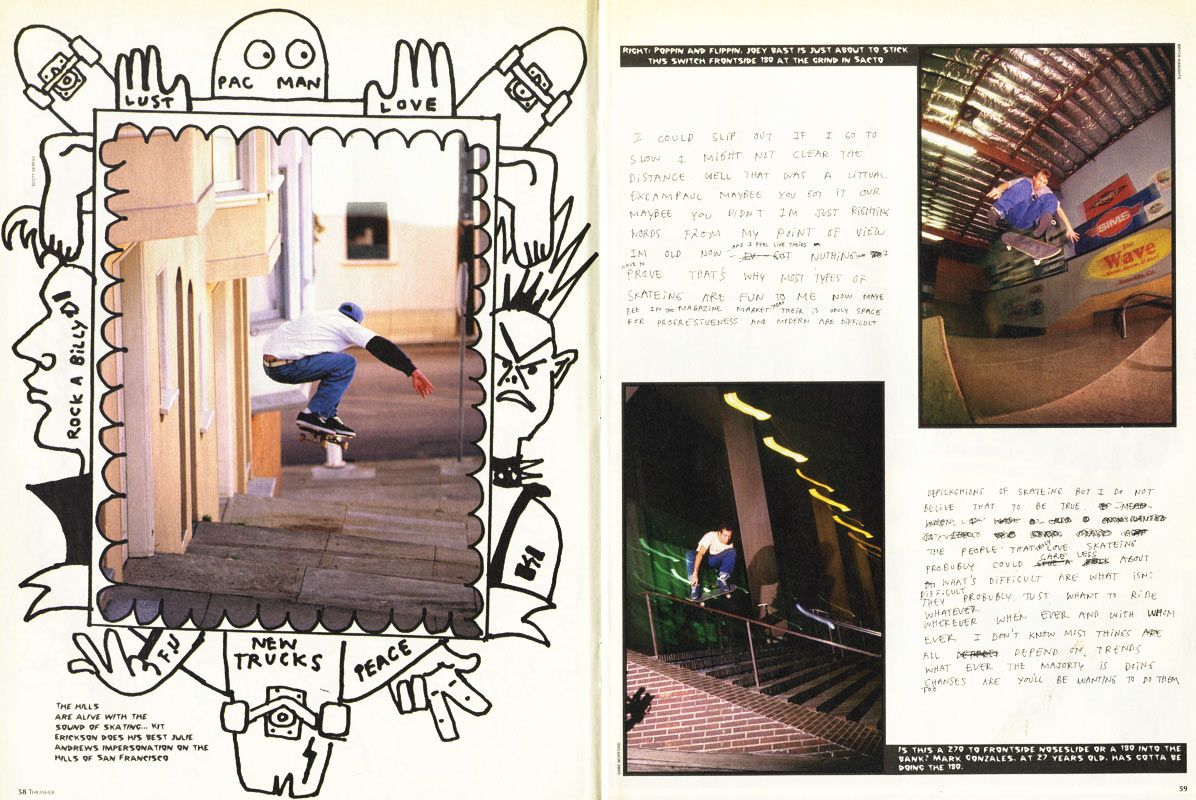 PAC MAN
LUST
LOVE
SCOTT SERFAS
ROCK A BILLY
Bill
F.U
NEW
TRUCKS
PEACE
THE HILLS
ARE ALIVE WITH THE
SOUND OF SKATING... KIT
ERICKSON DOES HIS BEST JULIE
ANDREWS IMPERSONATION ON THE
HILLS OF SAN FRANCISCO
58 THRASHER
RIGHT: POPPIN AND FLIPPIN. JOEY BAST IS JUST ABOUT TO STICK
THIS SWITCH FRONTSIDE 180 AT THE GRIND IN SACTO
BRYCE KANIGHTS
SIMS
The
Wave
I COULD SLIP OUT IF I GO TO
SLOW I MIGHT NOT CLEAR THE
DISTANCE. WELL THAT WAS A LITTUAL
EXCAMPAUL MAYBEE YOU GOT IT OUR
MAYBEE YOU DIDN'T IM JUST RIGHTING
WORDS FROM MY POINT OF VIEW
AND I FEEL LIKE THEIRS
IM OLD NOW GOT NUTHING I
HAVE TO
PROVE THAT'S WHY MOST TYPES OF
SKATEING ARE FUN TO ME NOW MAYE
BEE IN THE MAGAZINE MARKET THAT THEIR IS ONLY SPACE
FOR PROGRESTUENESS AND MODERN ARE DIFFICULT
DEPICKCHIONS OF SKATEING BUT I DO NOT
BELIVE THAT TO BE TRUE.
THE PEOPLE THAT ONLY LOVE SKATEING
CARE LESS
PROBUBLY COULD ABOUT
WHAT'S DIFFICULT ARE WHAT ISNT
DIFFICULT
THEY PROBUBLY JUST WHANT TO RIDE
WHATEVER
WHEREVER WHEN EVER AND WITH WHOM
EVER I DON'T KNOW MOST THINGS ARE
ALL DEPEND ON TRENDS
WHAT EVER THE MAJORTY IS DOING
CHANSES ARE YOU'LL BE WANTING TO DO THEM
TOO
GABE MORFORD
IS THIS A 270 TO FRONTSIDE NOSESLIDE OR A 180 INTO THE
BANK? MARK GONZALES, AT 27 YEARS OLD, HAS GOTTA BE
DOING THE 180.
59